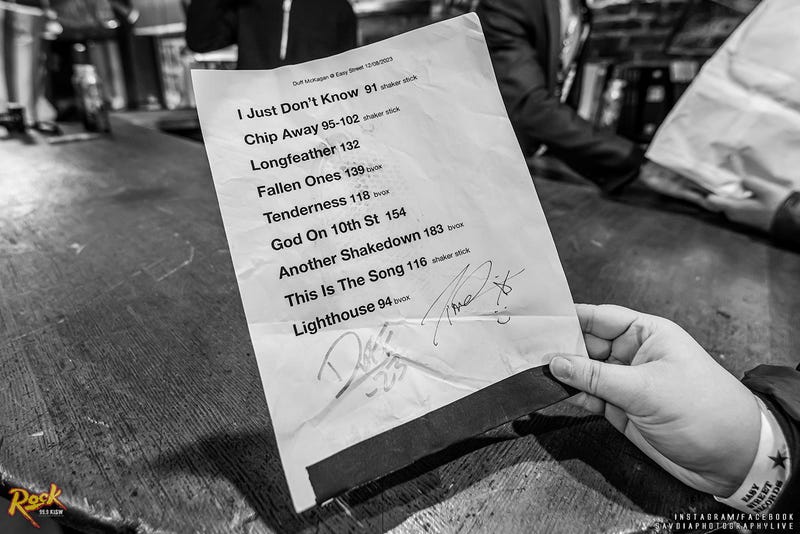 Duff McKagan @ Easy Street 12/08/2023
I Just Don't Know 91 shaker stick
Chip Away 95-102 shaker stick
Longfeather 132
Fallen Ones 139 bvox
Tenderness 118 bvox
God On 10th St 154
Another Shakedown 183 bvox
This Is The Song 116 shaker stick
Lighthouse 94 bvox
Duff
-23
EASY
STREET
RECORDS
Rock
99.9 KISW
INSTAGRAM/FACEBOOK
SAVOIAPHOTOGRAPHYLIVE